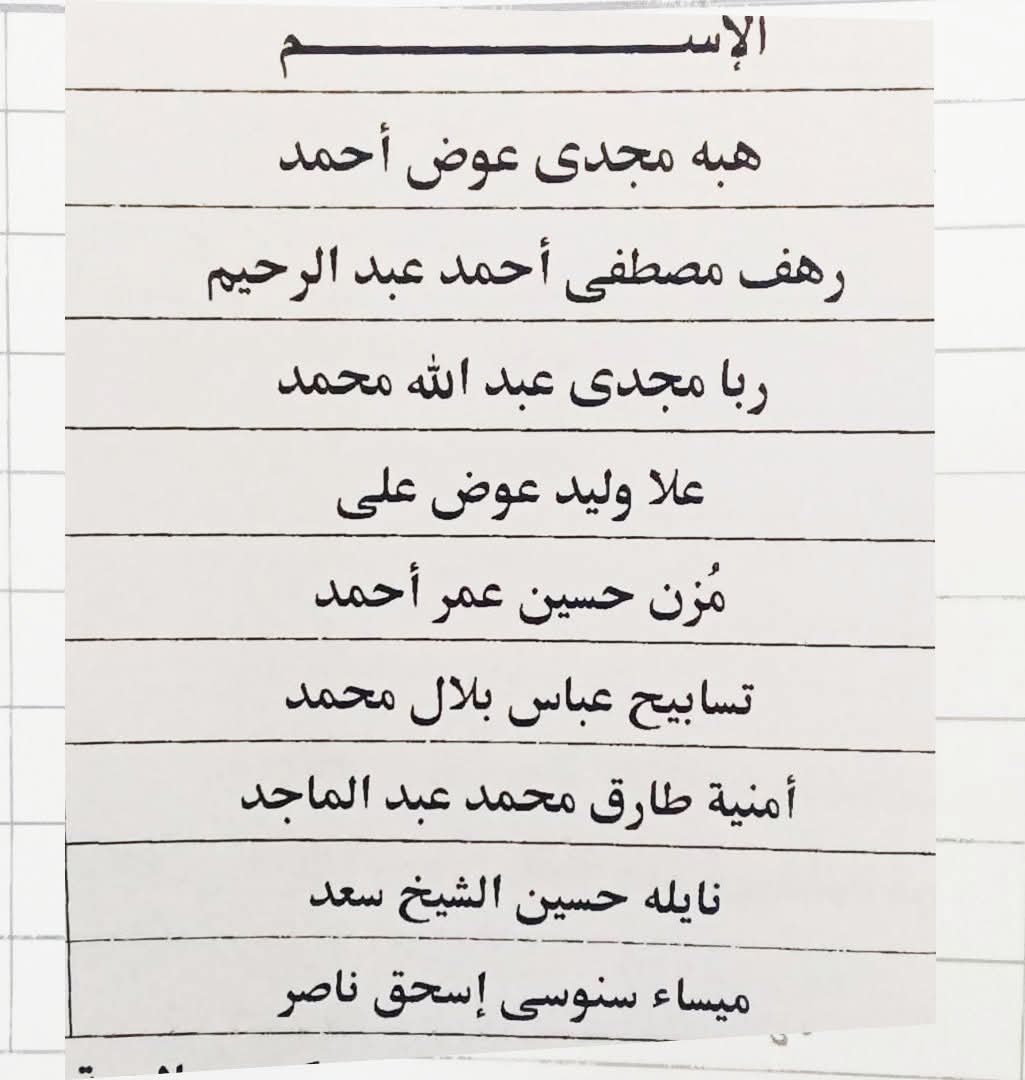 الإســـــــــــــــم
هبه مجدى عوض أحمد
رهف مصطفى أحمد عبد الرحيم
ربا مجدى عبد الله محمد
علا وليد عوض على
مُزن حسين عمر أحمد
تسابيح عباس بلال محمد
أمنية طارق محمد عبد الماجد
نايله حسين الشيخ سعد
ميساء سنوسى إسحق ناصر